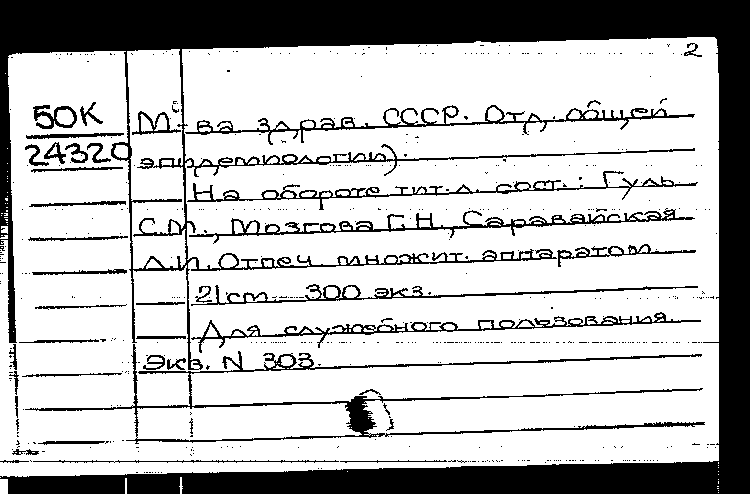 2
50К
24320
М-ва здрав. СССР. Отд. общей
эпидемиологии).
На обороте тит. л. сост.: Гуль
С.М., Мозгова Г.Н., Саравайская
Л.И. Отпеч. множит. аппаратом.
21cm. 300 экз.
Для служебного пользования.
Экз. N 303.